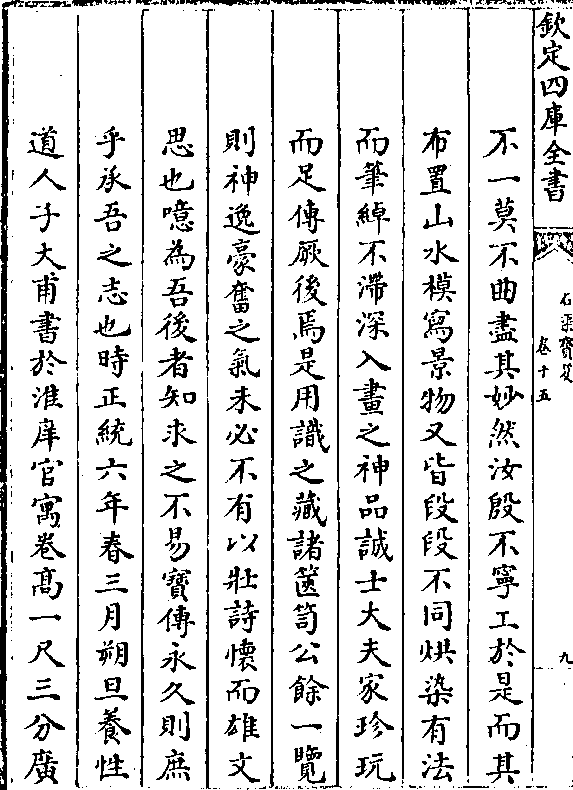 欽定四庫全書
石渠寶笈
卷十五
九
不一莫不曲盡其妙然汝殷不寧工於是而其
布置山水模寫景物又皆段段不同烘染有法
而筆綽不滯深入畫之神品誠士大夫家珍玩
而足傳厥後焉是用識之藏諸篋笥公餘一覽
則神逸豪奮之氣未必不有以壯詩懷而雄文
思也噫為吾後者知求之不易寶傳永久則庶
乎承吾之志也時正統六年春三月朔旦養性
道人子大甫書於淮庠官寓卷髙一尺三分廣